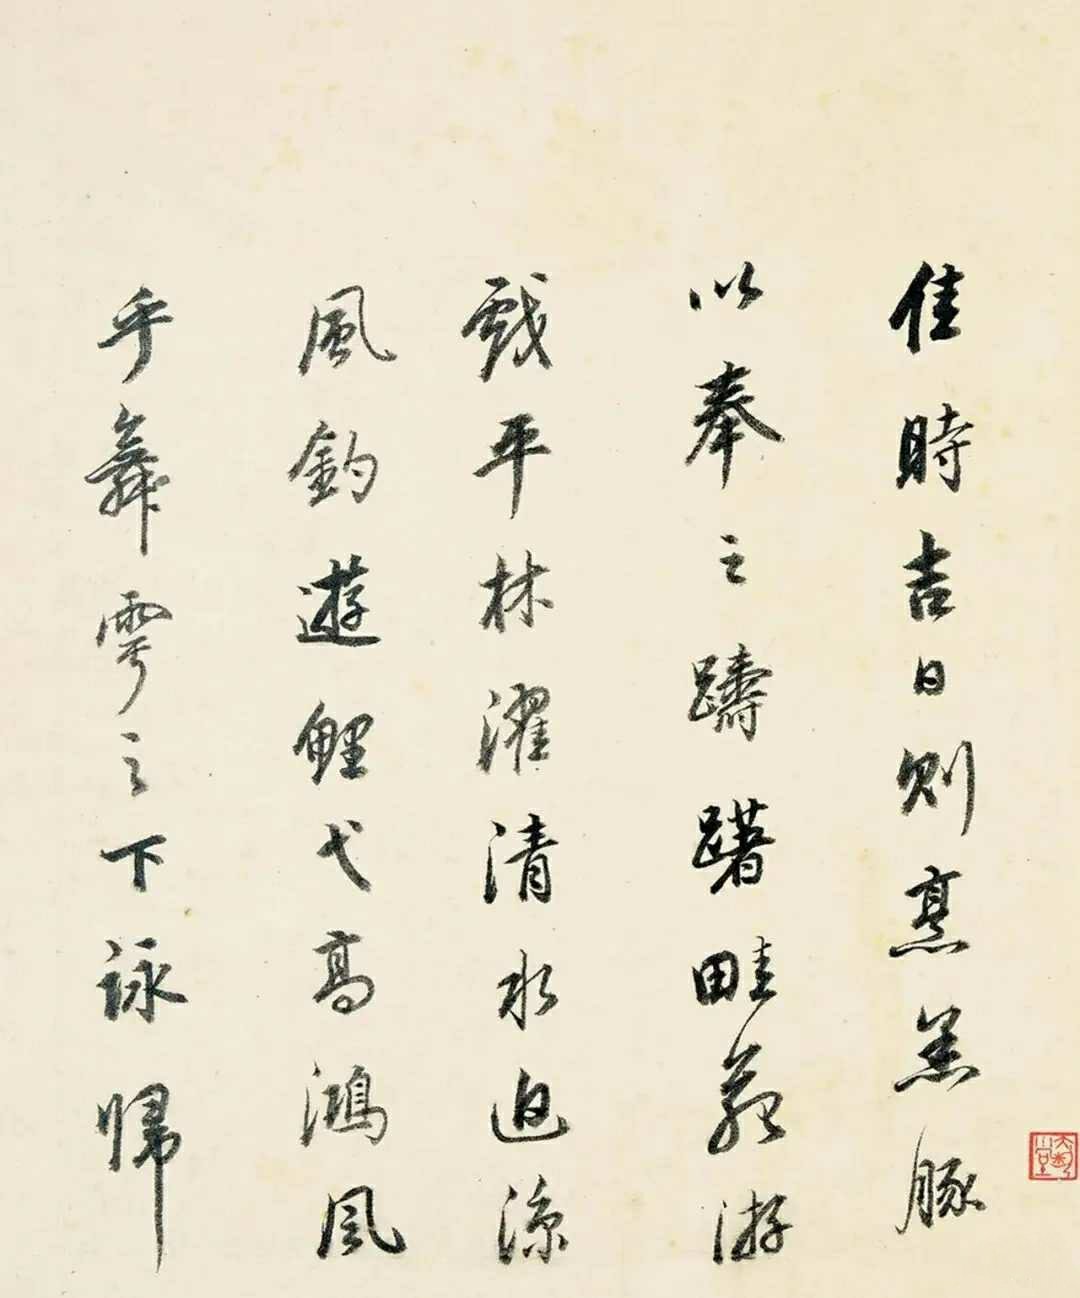 佳時吉日則烹羔豚
以奉之躊躇畦苑游
戲平林濯清水追涼
風釣遊鯉弋高鴻風
乎舞雩之下詠歸